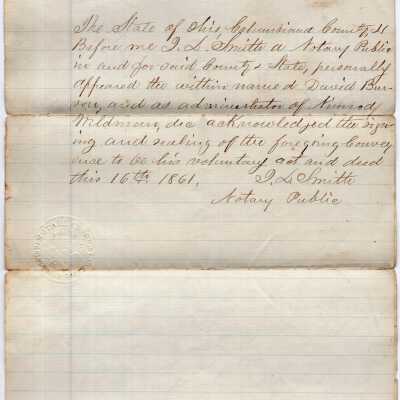 The State of Ohio, Columbiana County, ss
Before me J. L. Smith a Notary Public
in and for said County & State, personally
appeared the within named David Bur-
son, and as administrator of Nimrod
Wildman, dec acknowledged the sign-
ing and sealing of the foregoing Convey-
ance to be his voluntary act and deed
this 16th 1861.
J. L. Smith
Notary Public